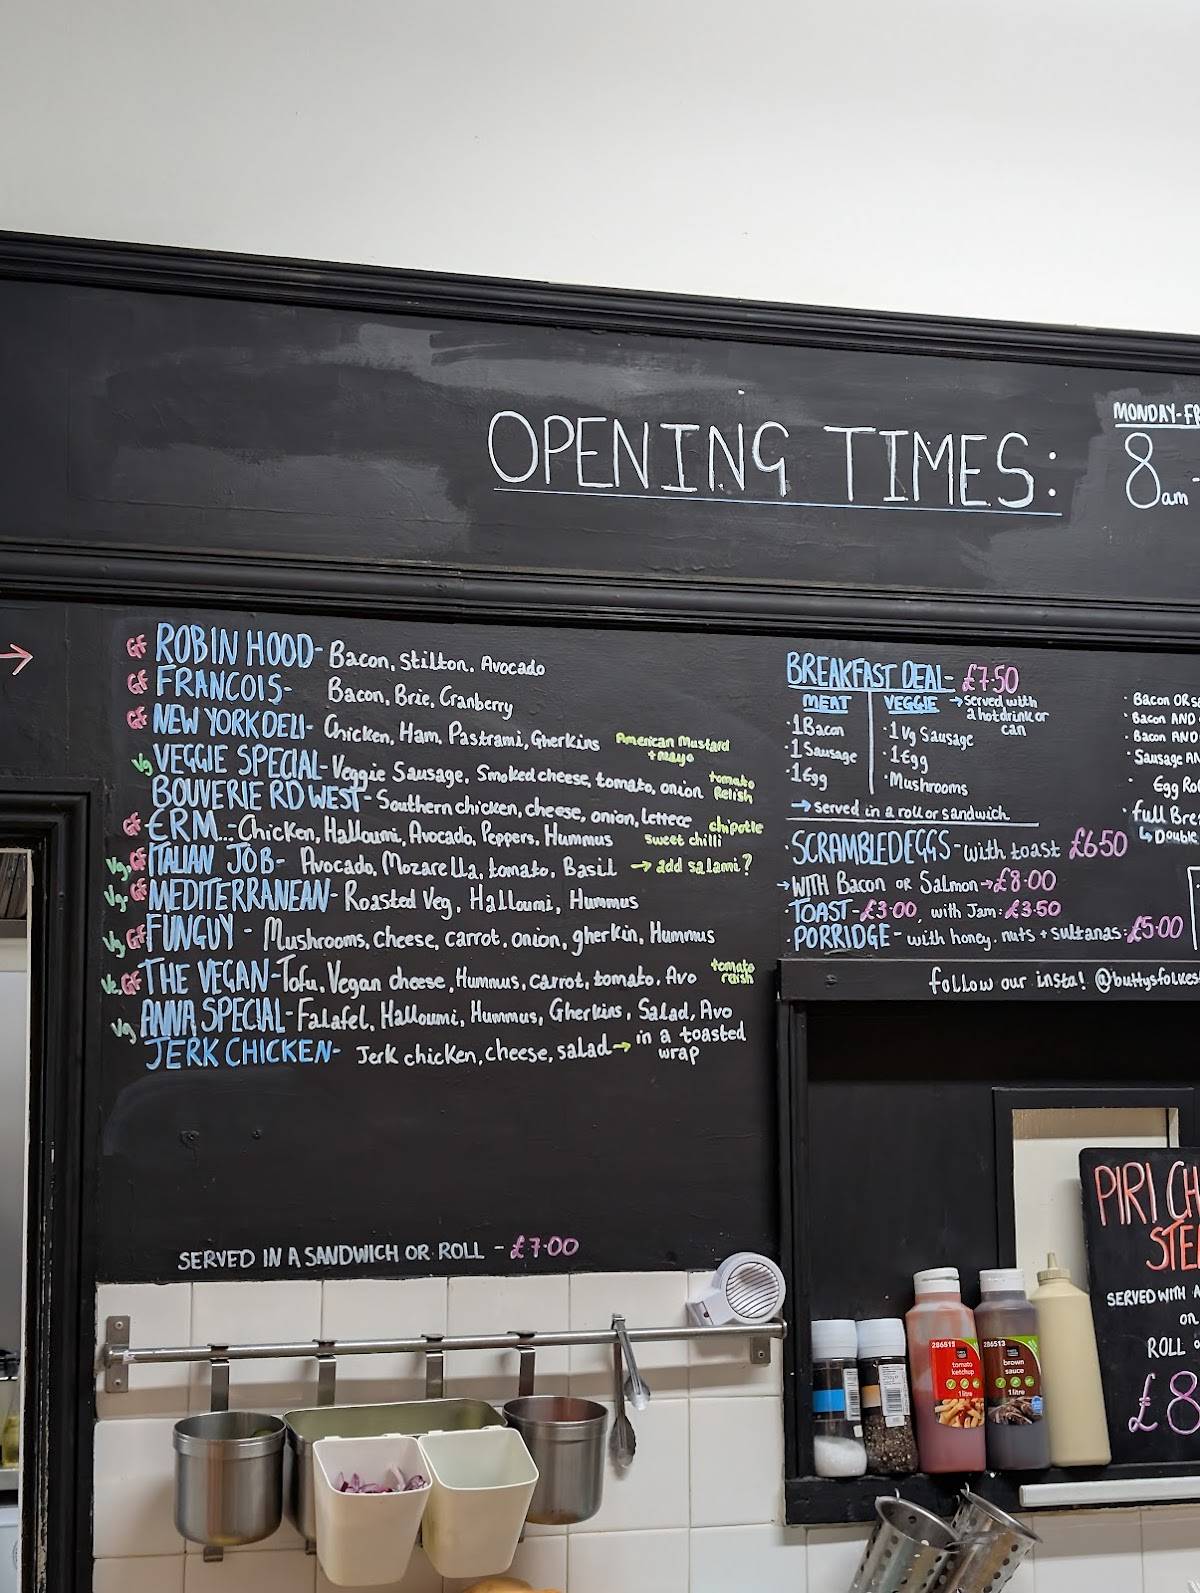 OPENING TIMES:
MONDAY-FR
8am-
GF ROBIN HOOD- Bacon, Stilton, Avocado
GF FRANCOIS- Bacon, Brie, Cranberry
GF NEW YORK DELI- Chicken, Ham, Pastrami, Gherkins American Mustard + mayo
Vg VEGGIE SPECIAL- Veggie Sausage, Smoked cheese, tomato, onion tomato Relish
BOUVERIE RD WEST- Southern chicken, cheese, onion, lettece chipotle
GF ERM...- Chicken, Halloumi, Avocado, Peppers, Hummus sweet chilli
Vg, GF ITALIAN JOB- Avocado, Mozarella, tomato, Basil → add salami?
Vg, GF MEDITERRANEAN- Roasted Veg, Halloumi, Hummus
Vg, GF FUNGUY - Mushrooms, cheese, carrot, onion, gherkin, Hummus
Ve, GF THE VEGAN- Tofu, Vegan cheese, Hummus, carrot, tomato, Avo tomato relish
Vg ANNA SPECIAL- Falafel, Halloumi, Hummus, Gherkins, Salad, Avo
JERK CHICKEN- Jerk chicken, cheese, salad → in a toasted wrap
SERVED IN A SANDWICH OR ROLL - £7.00
BREAKFAST DEAL- £7.50
MEAT VEGGIE → Served with a hot drink or can
·1 Bacon ·1 Vg Sausage
·1 Sausage ·1 Egg
·1 Egg ·Mushrooms
→ served in a roll or sandwich
·SCRAMBLED EGGS- with toast £6.50
→ WITH Bacon OR Salmon → £8.00
·TOAST- £3.00, with Jam: £3.50
·PORRIDGE- with honey, nuts + sultanas: £5.00
· Bacon OR Sa
· Bacon AND
· Bacon AND
· Sausage AN
· Egg Rol
· full Bre
↳ Double
follow our insta! @buttysfolkes
PIRI CH
STE
SERVED WITH A
on
ROLL o
£8
286515
tomato ketchup
1 litre
286513
brown sauce
1 litre